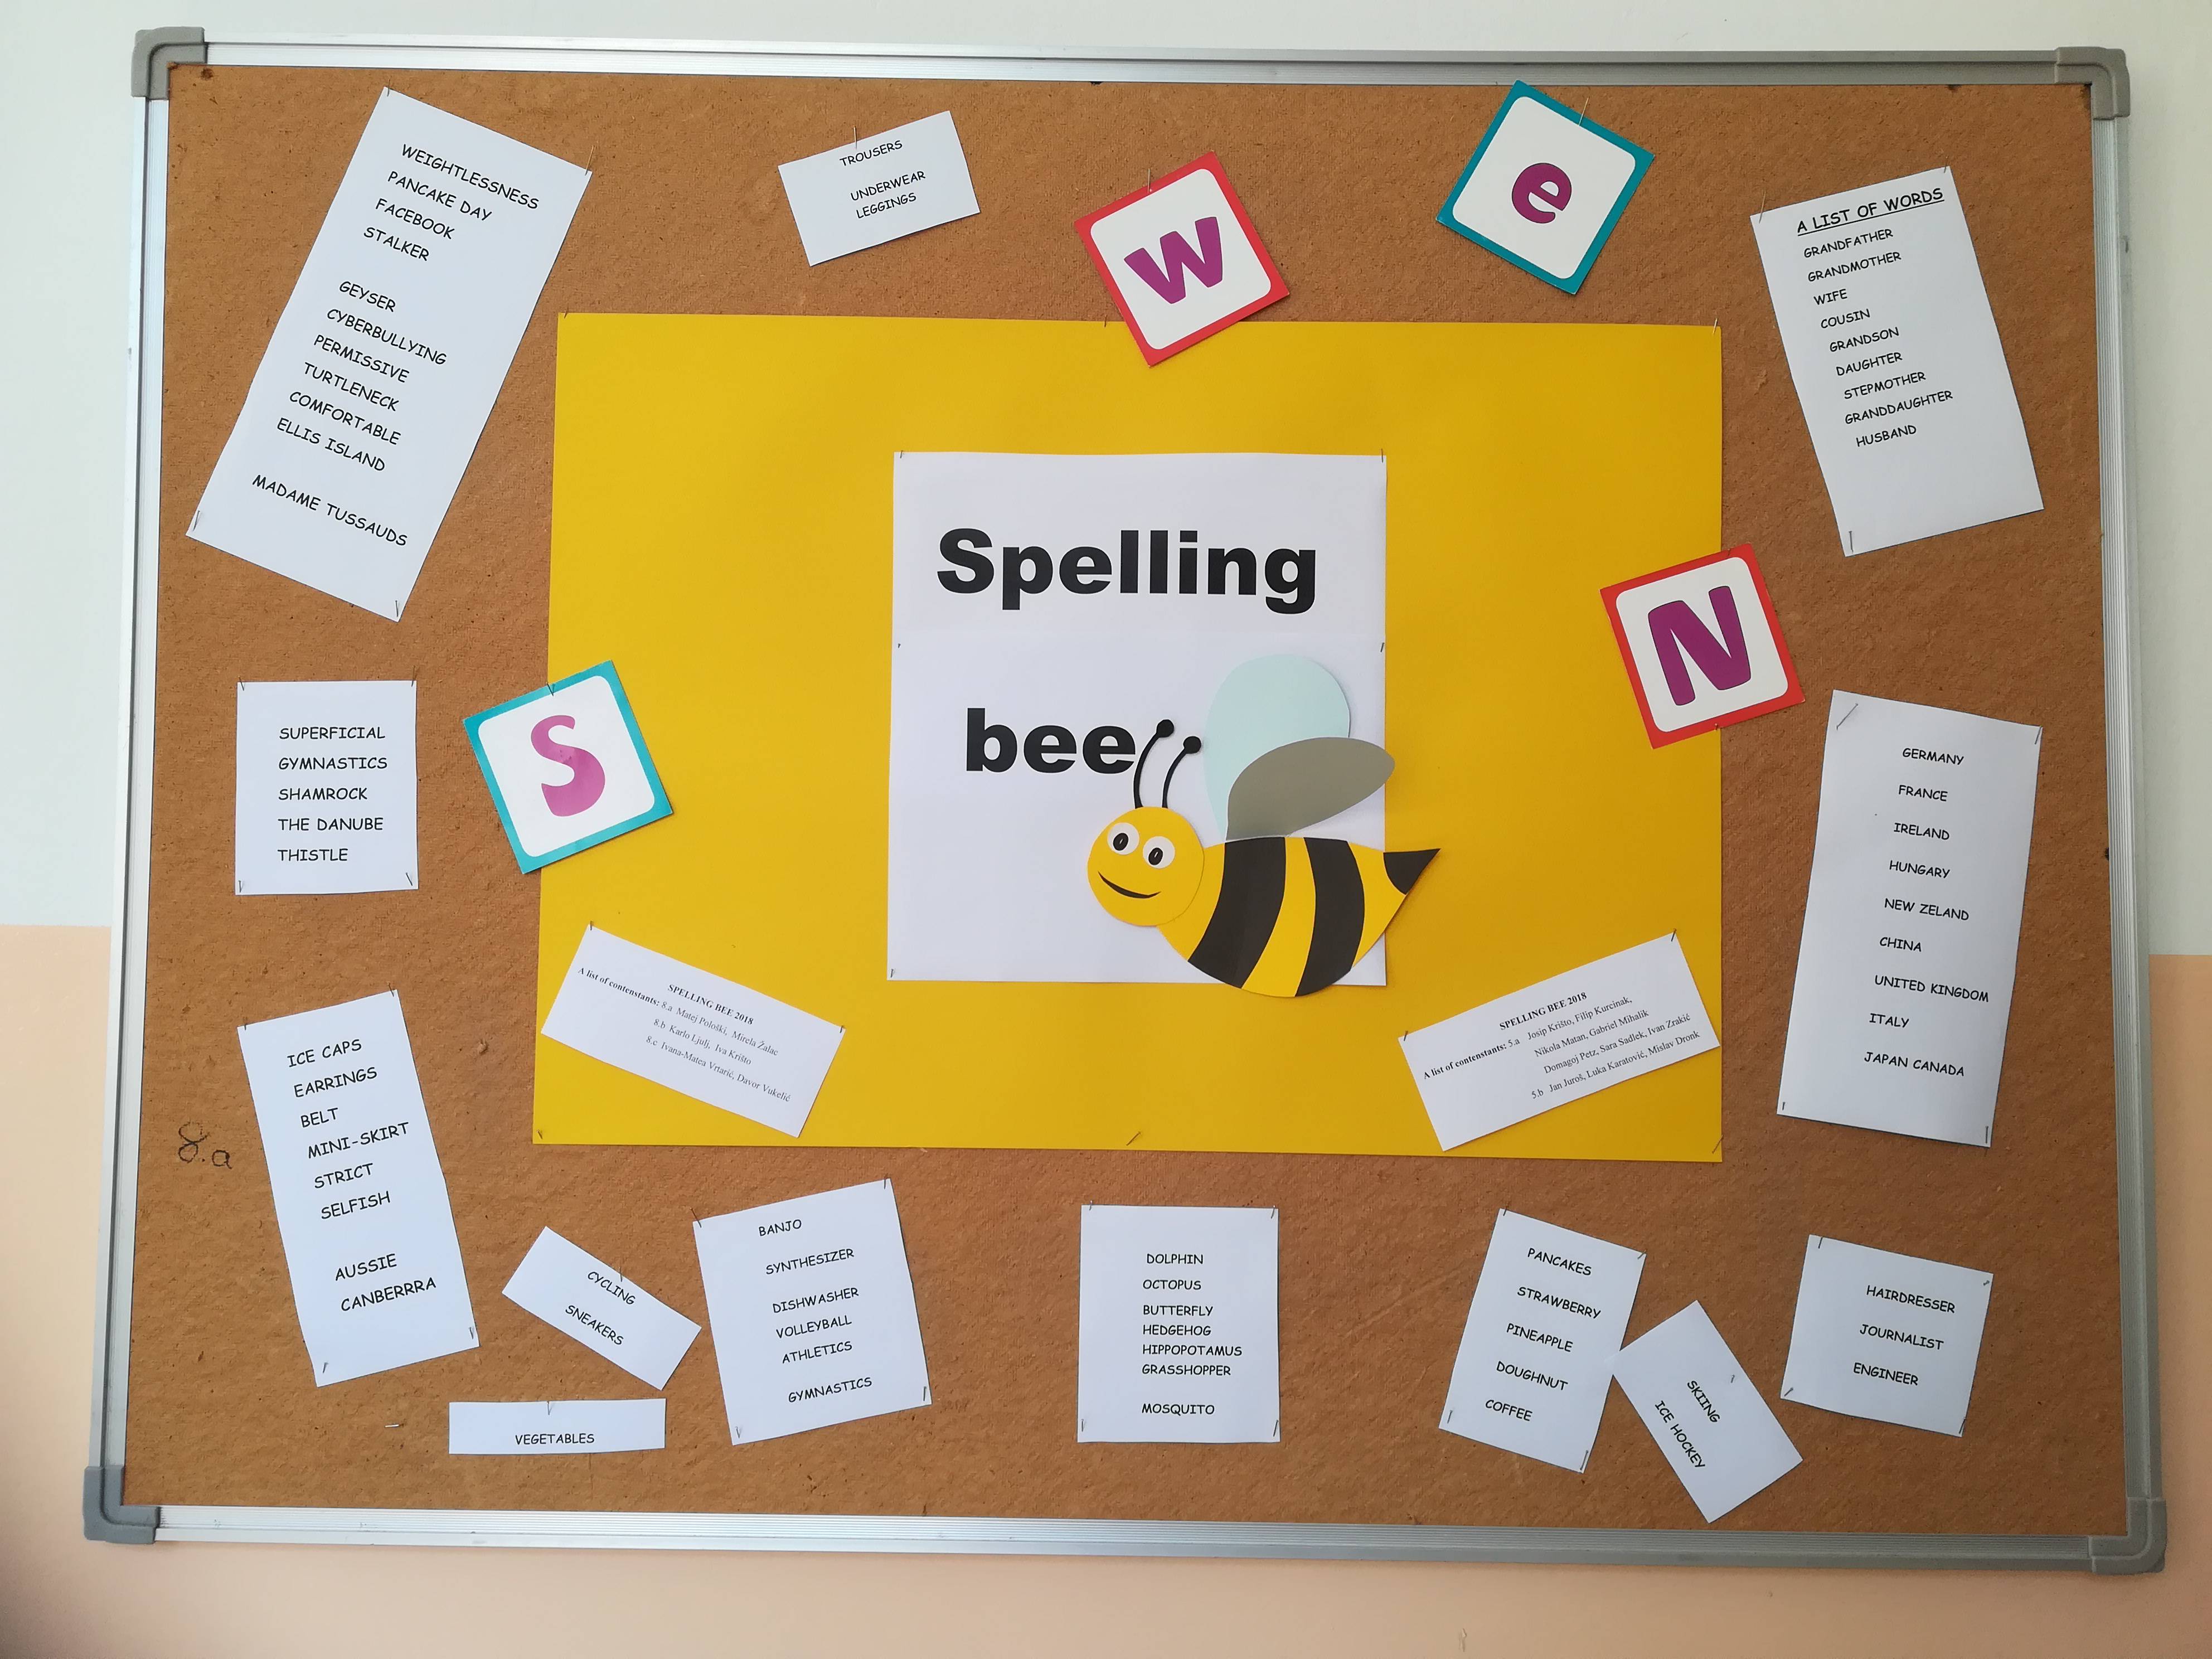 WEIGHTLESSNESS
PANCAKE DAY
FACEBOOK
STALKER
GEYSER
CYBERBULLYING
PERMISSIVE
TURTLENECK
COMFORTABLE
ELLIS ISLAND
MADAME TUSSAUDS
TROUSERS
UNDERWEAR
LEGGINGS
w
e
A LIST OF WORDS
GRANDFATHER
GRANDMOTHER
WIFE
COUSIN
GRANDSON
DAUGHTER
STEPMOTHER
GRANDDAUGHTER
HUSBAND
Spelling
bee
N
S
SUPERFICIAL
GYMNASTICS
SHAMROCK
THE DANUBE
THISTLE
GERMANY
FRANCE
IRELAND
HUNGARY
NEW ZELAND
CHINA
UNITED KINGDOM
ITALY
JAPAN CANADA
SPELLING BEE 2018
A list of contenstants: 8.a Matej Pološki, Mirela Žalac
8.b Karlo Ljulj, Iva Krišto
8.c Ivana-Matea Vrtarić, Davor Vukelić
SPELLING BEE 2018
A list of contenstants: 5.a Josip Krišto, Filip Kurcinak,
Nikola Matan, Gabriel Mihalik
Domagoj Petz, Sara Sadlek, Ivan Zrakić
5.b Jan Juroš, Luka Karatović, Mislav Dronk
8.a
ICE CAPS
EARRINGS
BELT
MINI-SKIRT
STRICT
SELFISH
AUSSIE
CANBERRRA
CYCLING
SNEAKERS
VEGETABLES
BANJO
SYNTHESIZER
DISHWASHER
VOLLEYBALL
ATHLETICS
GYMNASTICS
DOLPHIN
OCTOPUS
BUTTERFLY
HEDGEHOG
HIPPOPOTAMUS
GRASSHOPPER
MOSQUITO
PANCAKES
STRAWBERRY
PINEAPPLE
DOUGHNUT
COFFEE
SKIING
ICE HOCKEY
HAIRDRESSER
JOURNALIST
ENGINEER